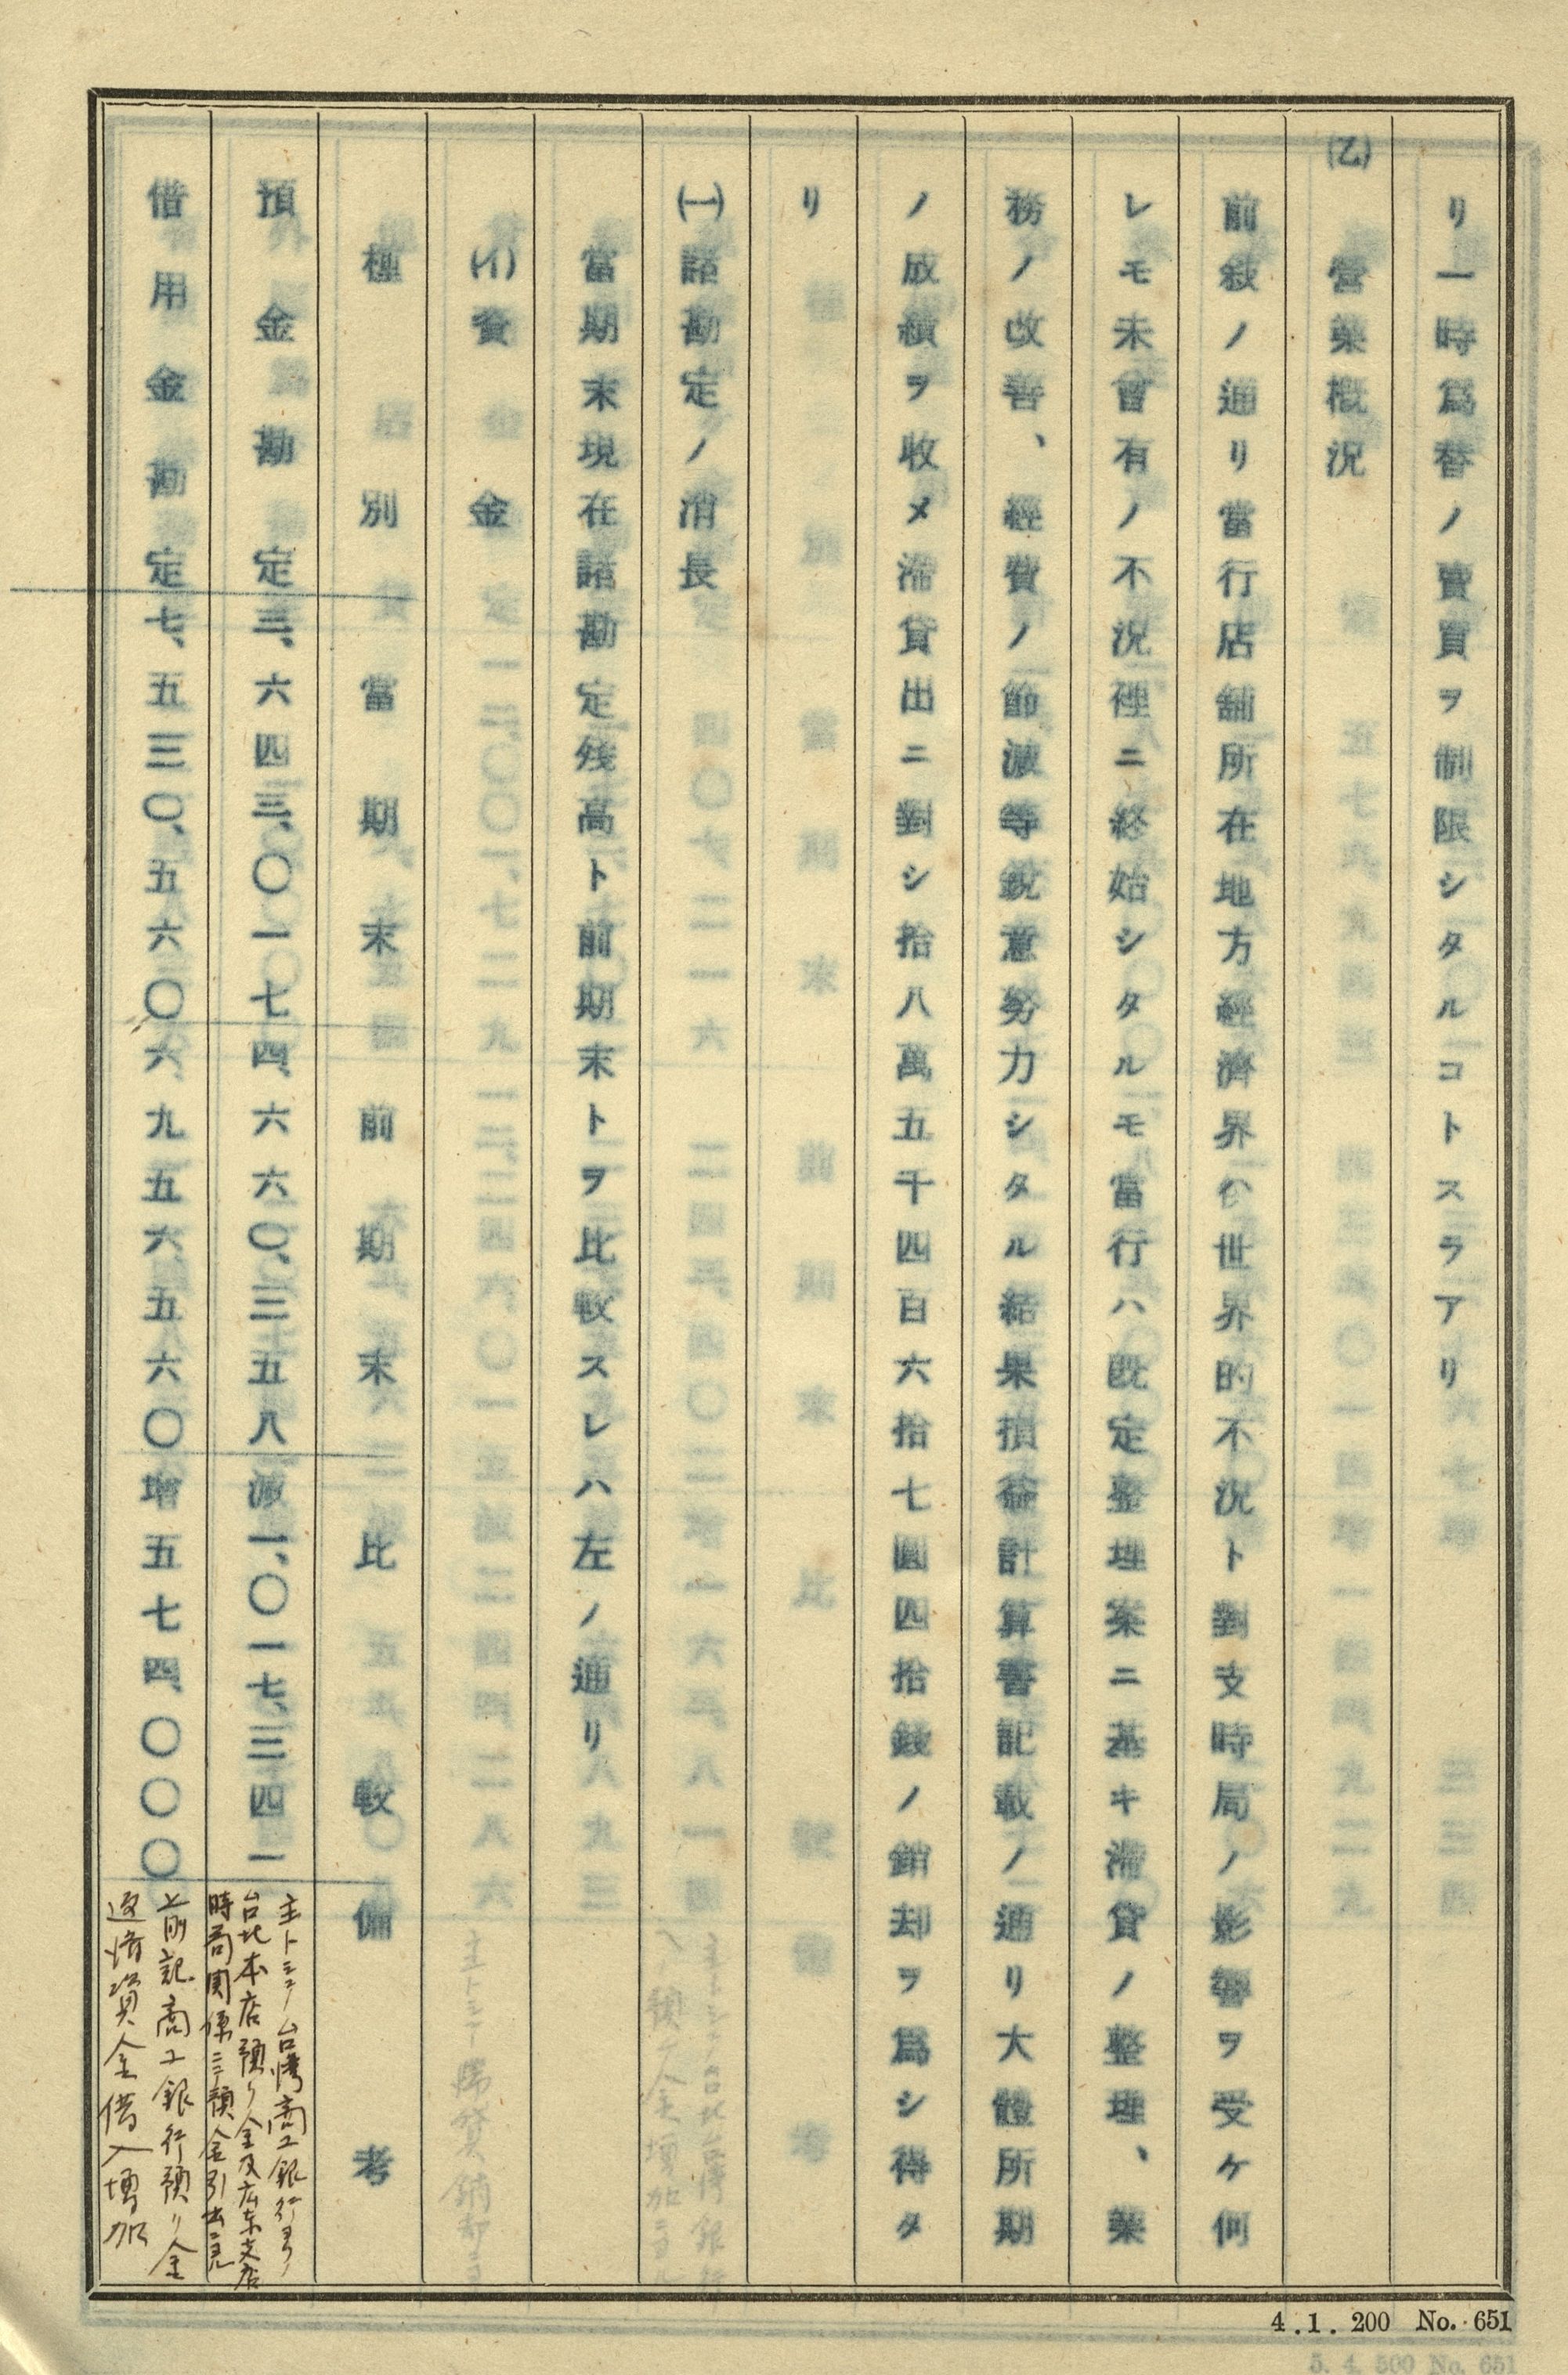 リ一時爲替ノ賣買ヲ制限シタルコトスラアリ
(乙) 營業概況
前敍ノ通リ當行店舖所在地方經濟界ハ世界的不況ト對支時局ノ影響ヲ受ケ何
レモ未曾有ノ不況裡ニ終始シタルモ當行ハ既定整理案ニ基キ滯貸ノ整理、業
務ノ改善、經費ノ節減等鋭意努力シタル結果損益計算書記載ノ通リ大體所期
ノ成績ヲ收メ滯貸出ニ對シ拾八萬五千四百六拾七圓四拾錢ノ銷却ヲ爲シ得タ
リ
(一)諸勘定ノ消長
當期末現在諸勘定残高ト前期末トヲ比較スレハ左ノ通リ
(イ)資金
種別 當期末 前期末 比較 備考
預金勘定 三、六四三、〇一七 四、六六〇、三五八 減一、〇一七、三四一 主トシテ台湾商工銀行ヨリノ
台北本店預リ金及広东支店
時局関係ニテ預金引出
借用金勘定 七、五三〇、五六〇 六、九五六、五六〇 增五七四、〇〇〇 上前記商工銀行預リ金
返済資金借入増加
4.1.200 No. 651
5. 4. 500 No. 651